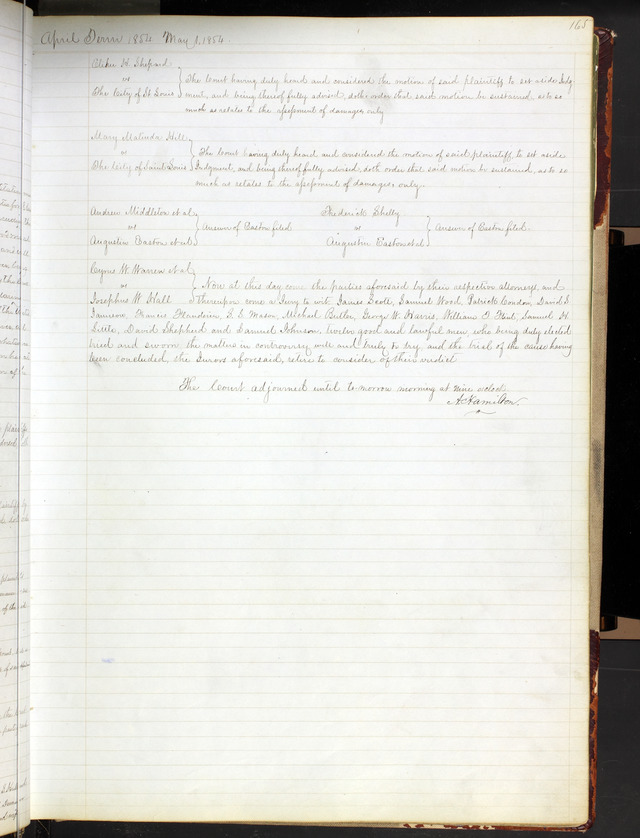 165
April Term 1854 May 1, 1854.
Elihu H. Shepard
vs
The City of St Louis
The Court having duly heard and considered the motion of said plaintiff to set aside Judg
ment, and being thereof fully advised, doth order that said motion be sustained, as to so
much as relates to the assessment of damages only
Mary Malinda Hill
vs
The City of Saint Louis
The Court having duly heard and considered the motion of said plaintiff, to set aside
Judgment, and being thereof fully advised, doth order that said motion be sustained, as to so
much as relates to the assessment of damages only.
Andrew Middleton et al
vs
Augustus Easton et al
Answer of Easton filed
Frederick Shelly
vs
Augustin Easton et al
Answer of Easton filed.
Cyrus W. Warren et al
vs
Josephus W. Hall
Now at this day come the parties aforesaid by their respective attorneys, and
thereupon come a Jury to wit, James Scott, Samuel Wood, Patrick Condon, David S.
Jamison, Francis J. E. Mason, Michael Butler, George W. Harris, William Samuel H.
David Shepherd and Samuel Johnson, twelve good and lawful men, who being duly elected
tried and sworn the matters in controversy well and truly to try, and the trial of the cause having
been concluded, the Jurors aforesaid, retire to consider of their verdict
The Court adjourned until to morrow morning at nine oclock
A. Hamilton.